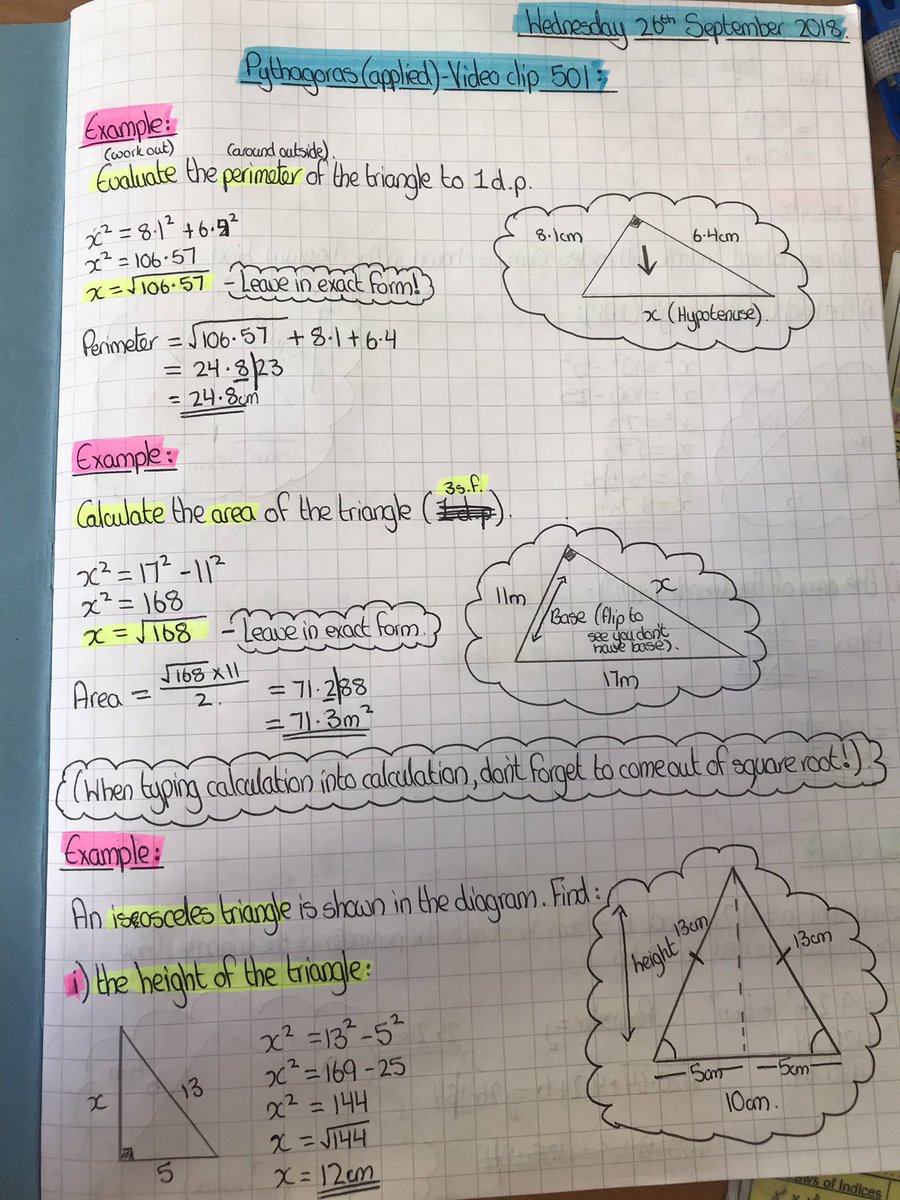 Wednesday 26th September 2018.
Pythagoras (applied) - Video clip 501:
Example:
(work out) (around outside).
Evaluate the perimeter of the triangle to 1 d.p.
x² = 8·1² + 6·9²
x² = 106·57
x = √106·57 - Leave in exact form!
8·1cm 6·4cm
x (Hypotenuse).
Perimeter = √106·57 + 8·1 + 6·4
= 24·8|23
= 24·8cm
Example:
3 s.f.
Calculate the area of the triangle (1 d.p).
x² = 17² - 11²
x² = 168
x = √168 - Leave in exact form.
11m x
Base (flip to
see you don't
have base).
17m
Area = √168 × 11 / 2. = 71·2|88
= 71·3m²
(When typing calculation into calculation, don't forget to come out of square root!).
Example:
An isosceles triangle is shown in the diagram. Find:
i) the height of the triangle:
height 13cm 13cm
5cm 5cm
10cm.
x 13
5
x² = 13² - 5²
x² = 169 - 25
x² = 144
x = √144
x = 12cm
aws of Indices